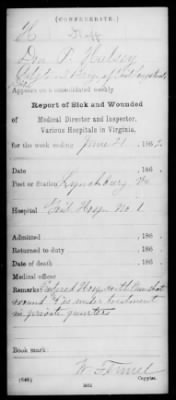 (CONFEDERATE.)
H Staff
Don P. Halsey
Appears on a consolidated weekly
Report of Sick and Wounded
of Medical Director and Inspector,
Various Hospitals in Virginia,
for the week ending June 21, 186 2.
Date , 186 .
Post or Station Lynchburg Va
Hospital Gen'l Hosp No 1
Admitted , 186 .
Returned to duty , 186 .
Date of death , 186 .
Medical officer
Remarks: Hosp with Gun shot
wound under treatment
in private quarters
Book mark:
(646) Copyist.